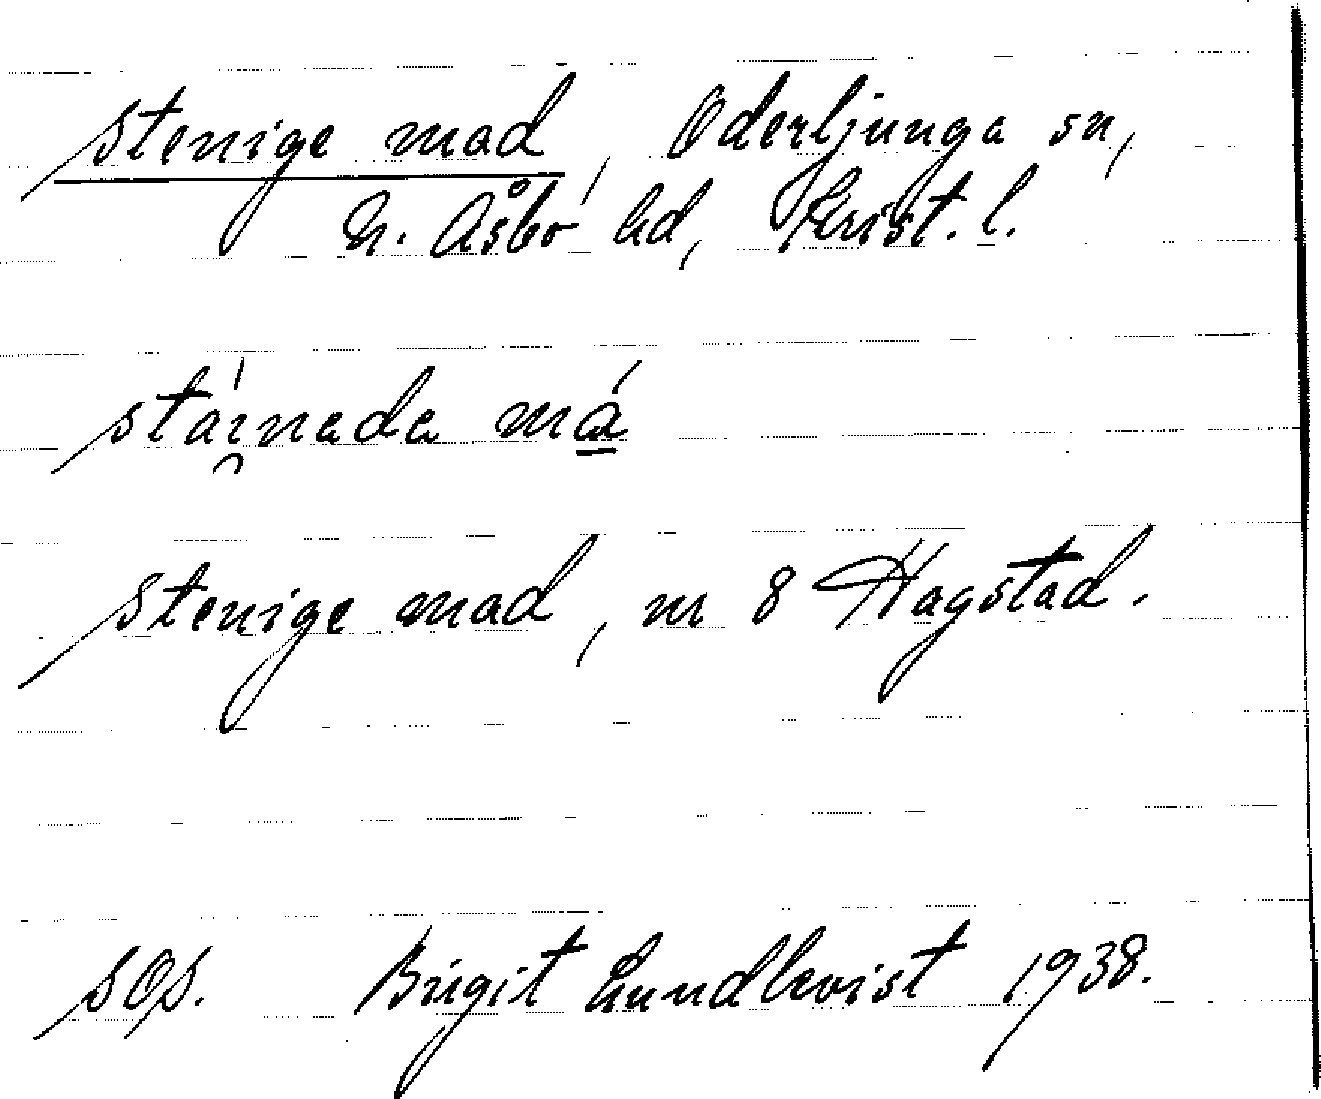 Stenige mad, Oderljunga sn,
N. Åsbo hd, Krist. l.
stáinada má
Stenige mad, nr 8 Hagstad.
SOS. Birgit Lundkvist 1938.